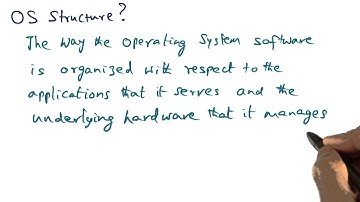 OS Structure?
The way the operating System software
is organized with respect to the
applications that it serves and the
underlying hardware that it manages